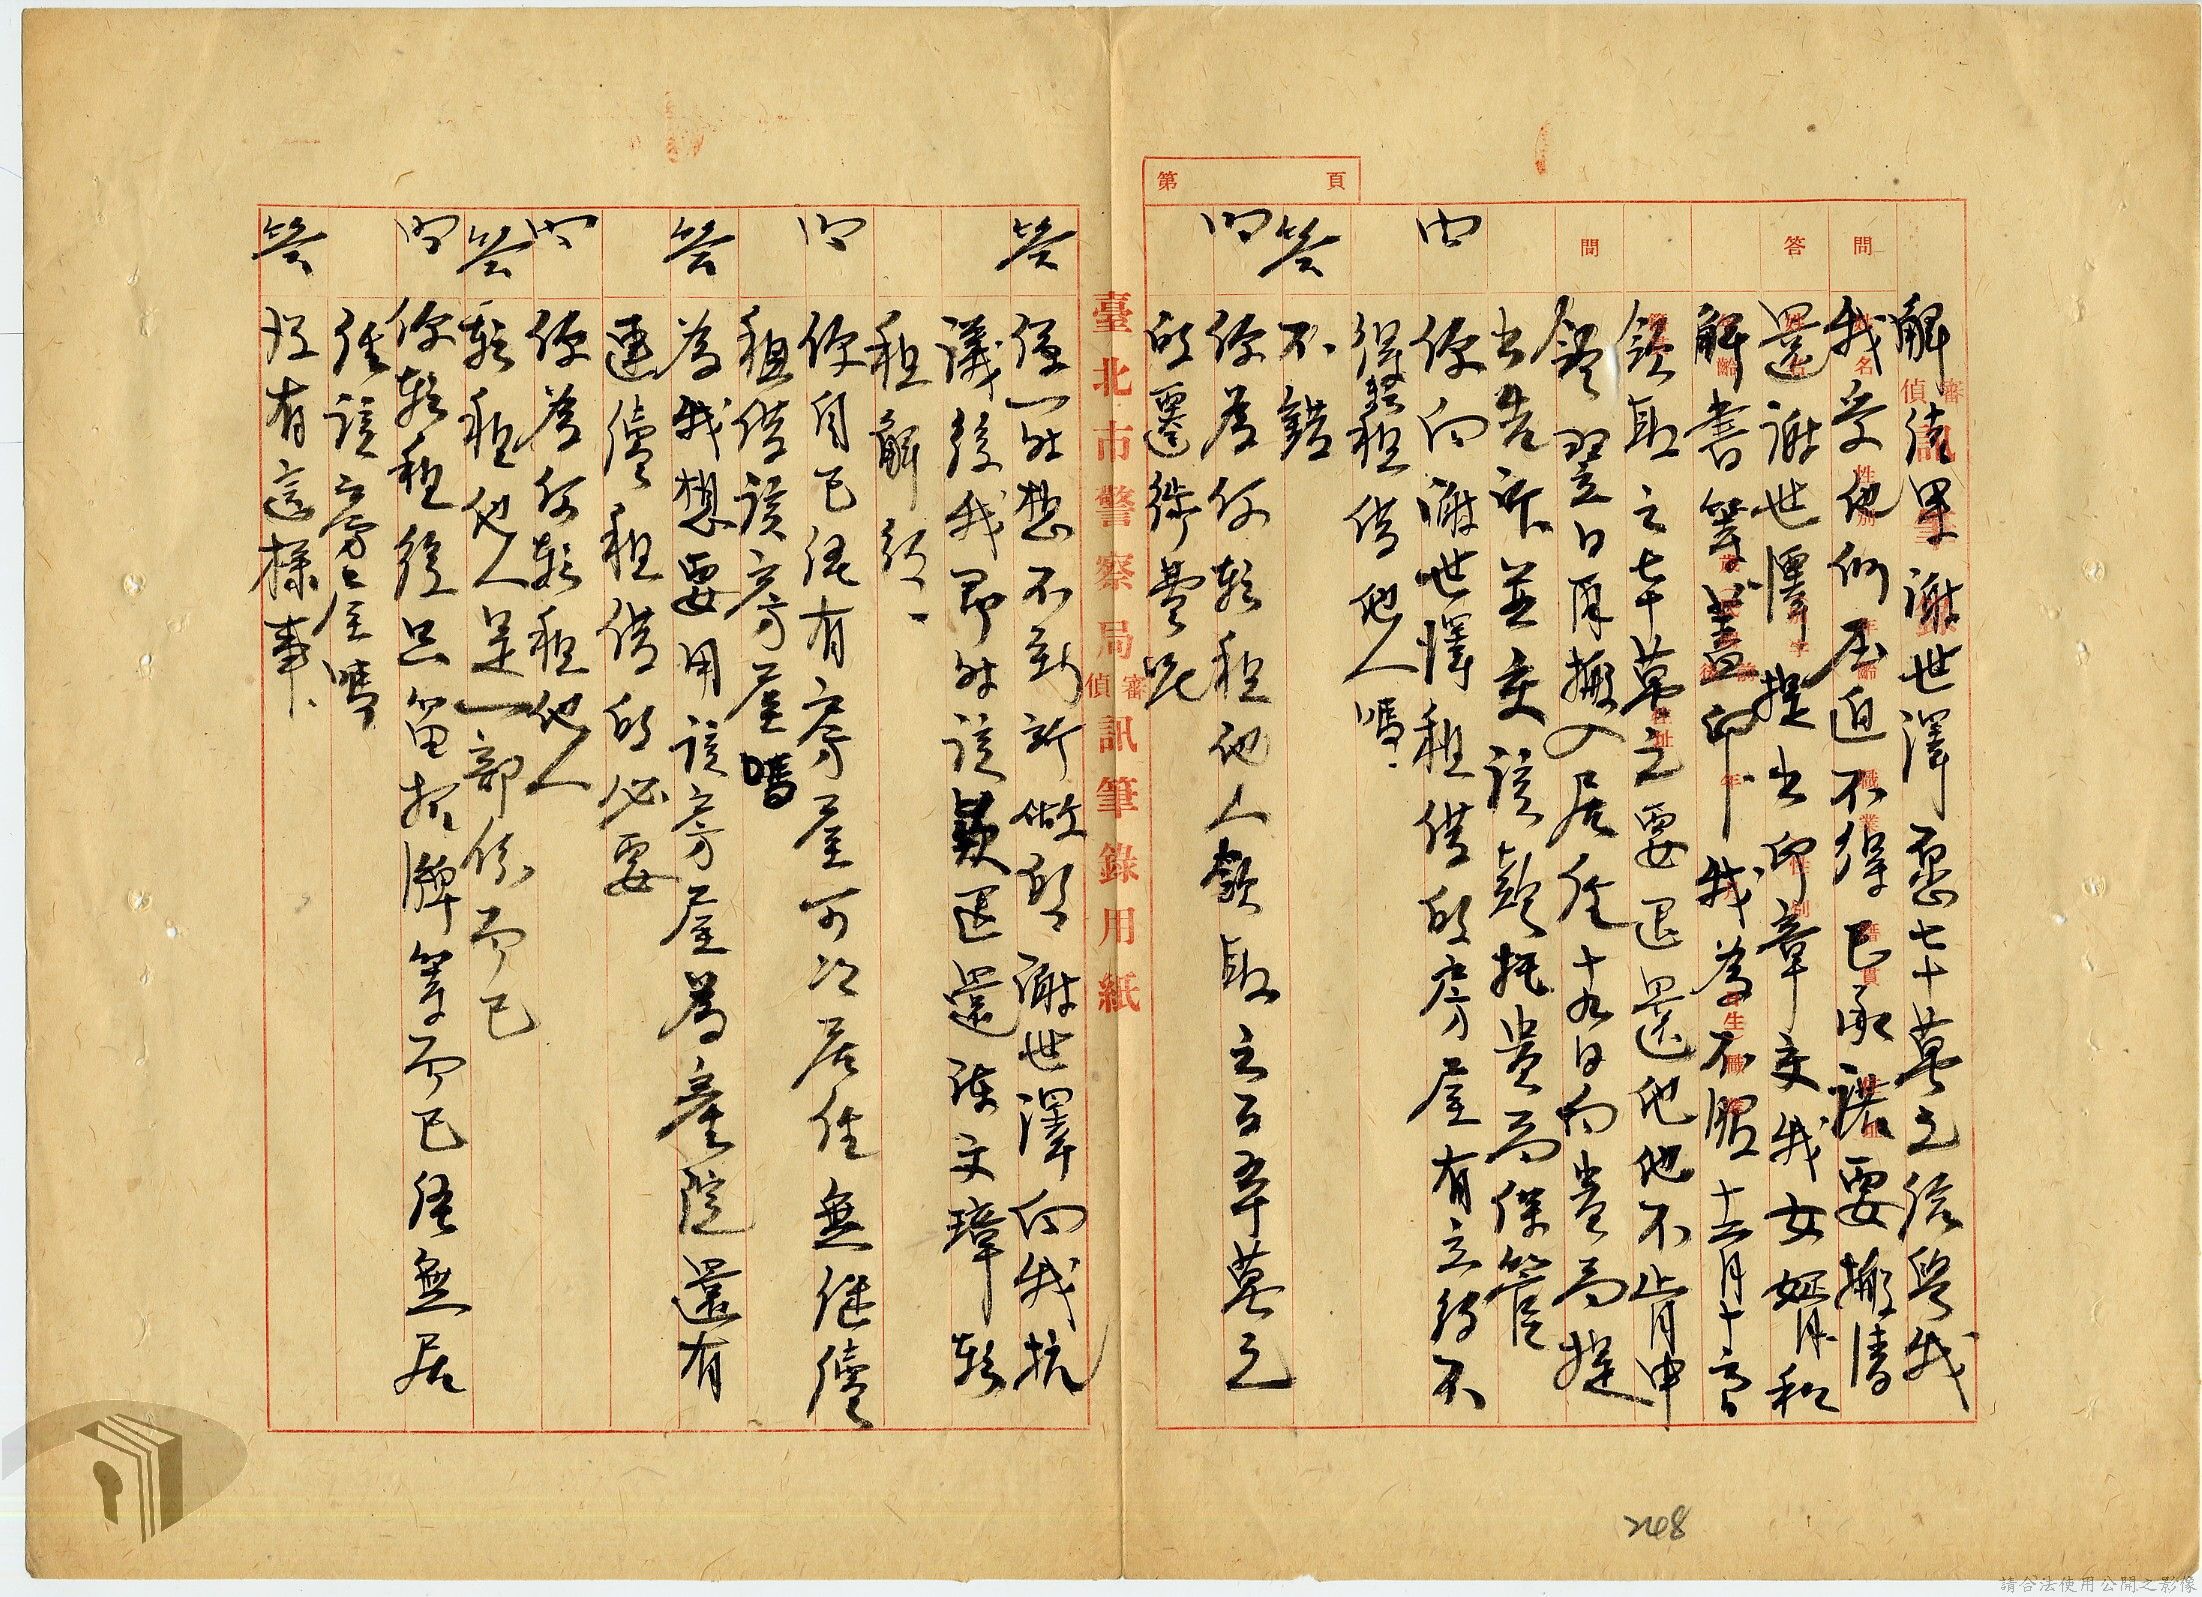 第 頁
解結果謝世澤墨七十萬元給與我
我受他們压迫不得已承諾要搬清
還謝世澤提出印章交我女婿和
解書等蓋印我為不服十二月十六日
領取之七十萬元要退還他他不肯申
翌日再搬入居住十九日向貴局提
出告訴並交該款托貴局保管
問 你向謝世澤租借的房屋有立約不
得轉租借他人嗎
答 不錯
問 你為何轉租他人領取立百五十萬元
的遷徙費呢
臺北市警察局偵審訊筆錄用紙
答 一時想不到所做的謝世澤向我抗
議後我即時該款退還陳文璋轉
租解約
問 你自己還有房屋可以居住無繼續
租借該房屋嗎
答 為我想要用該房屋為產院還有
連續租借的必要
問 你為何轉租他人
答 轉租他人是一部份而已
問 你轉租後只留招牌等而已你無居
住該房屋嗎
答 沒有這樣事
248
請合法使用公開之影像